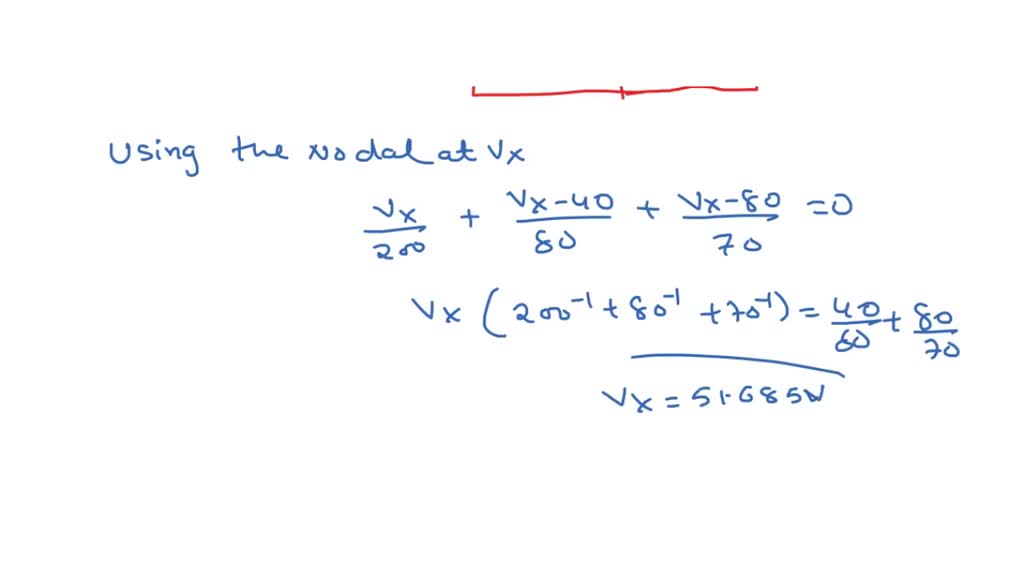 Using the Nodal at Vx
Vx/200 + Vx-40/80 + Vx-80/70 = 0
Vx (200⁻¹ + 80⁻¹ + 70⁻¹) = 40/80 + 80/70
Vx = 51.685V